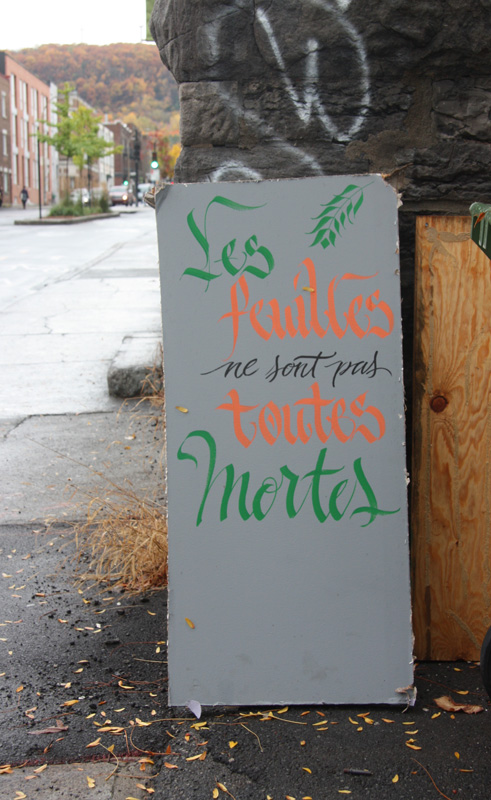 Les
feuilles
ne sont pas
toutes
Mortes